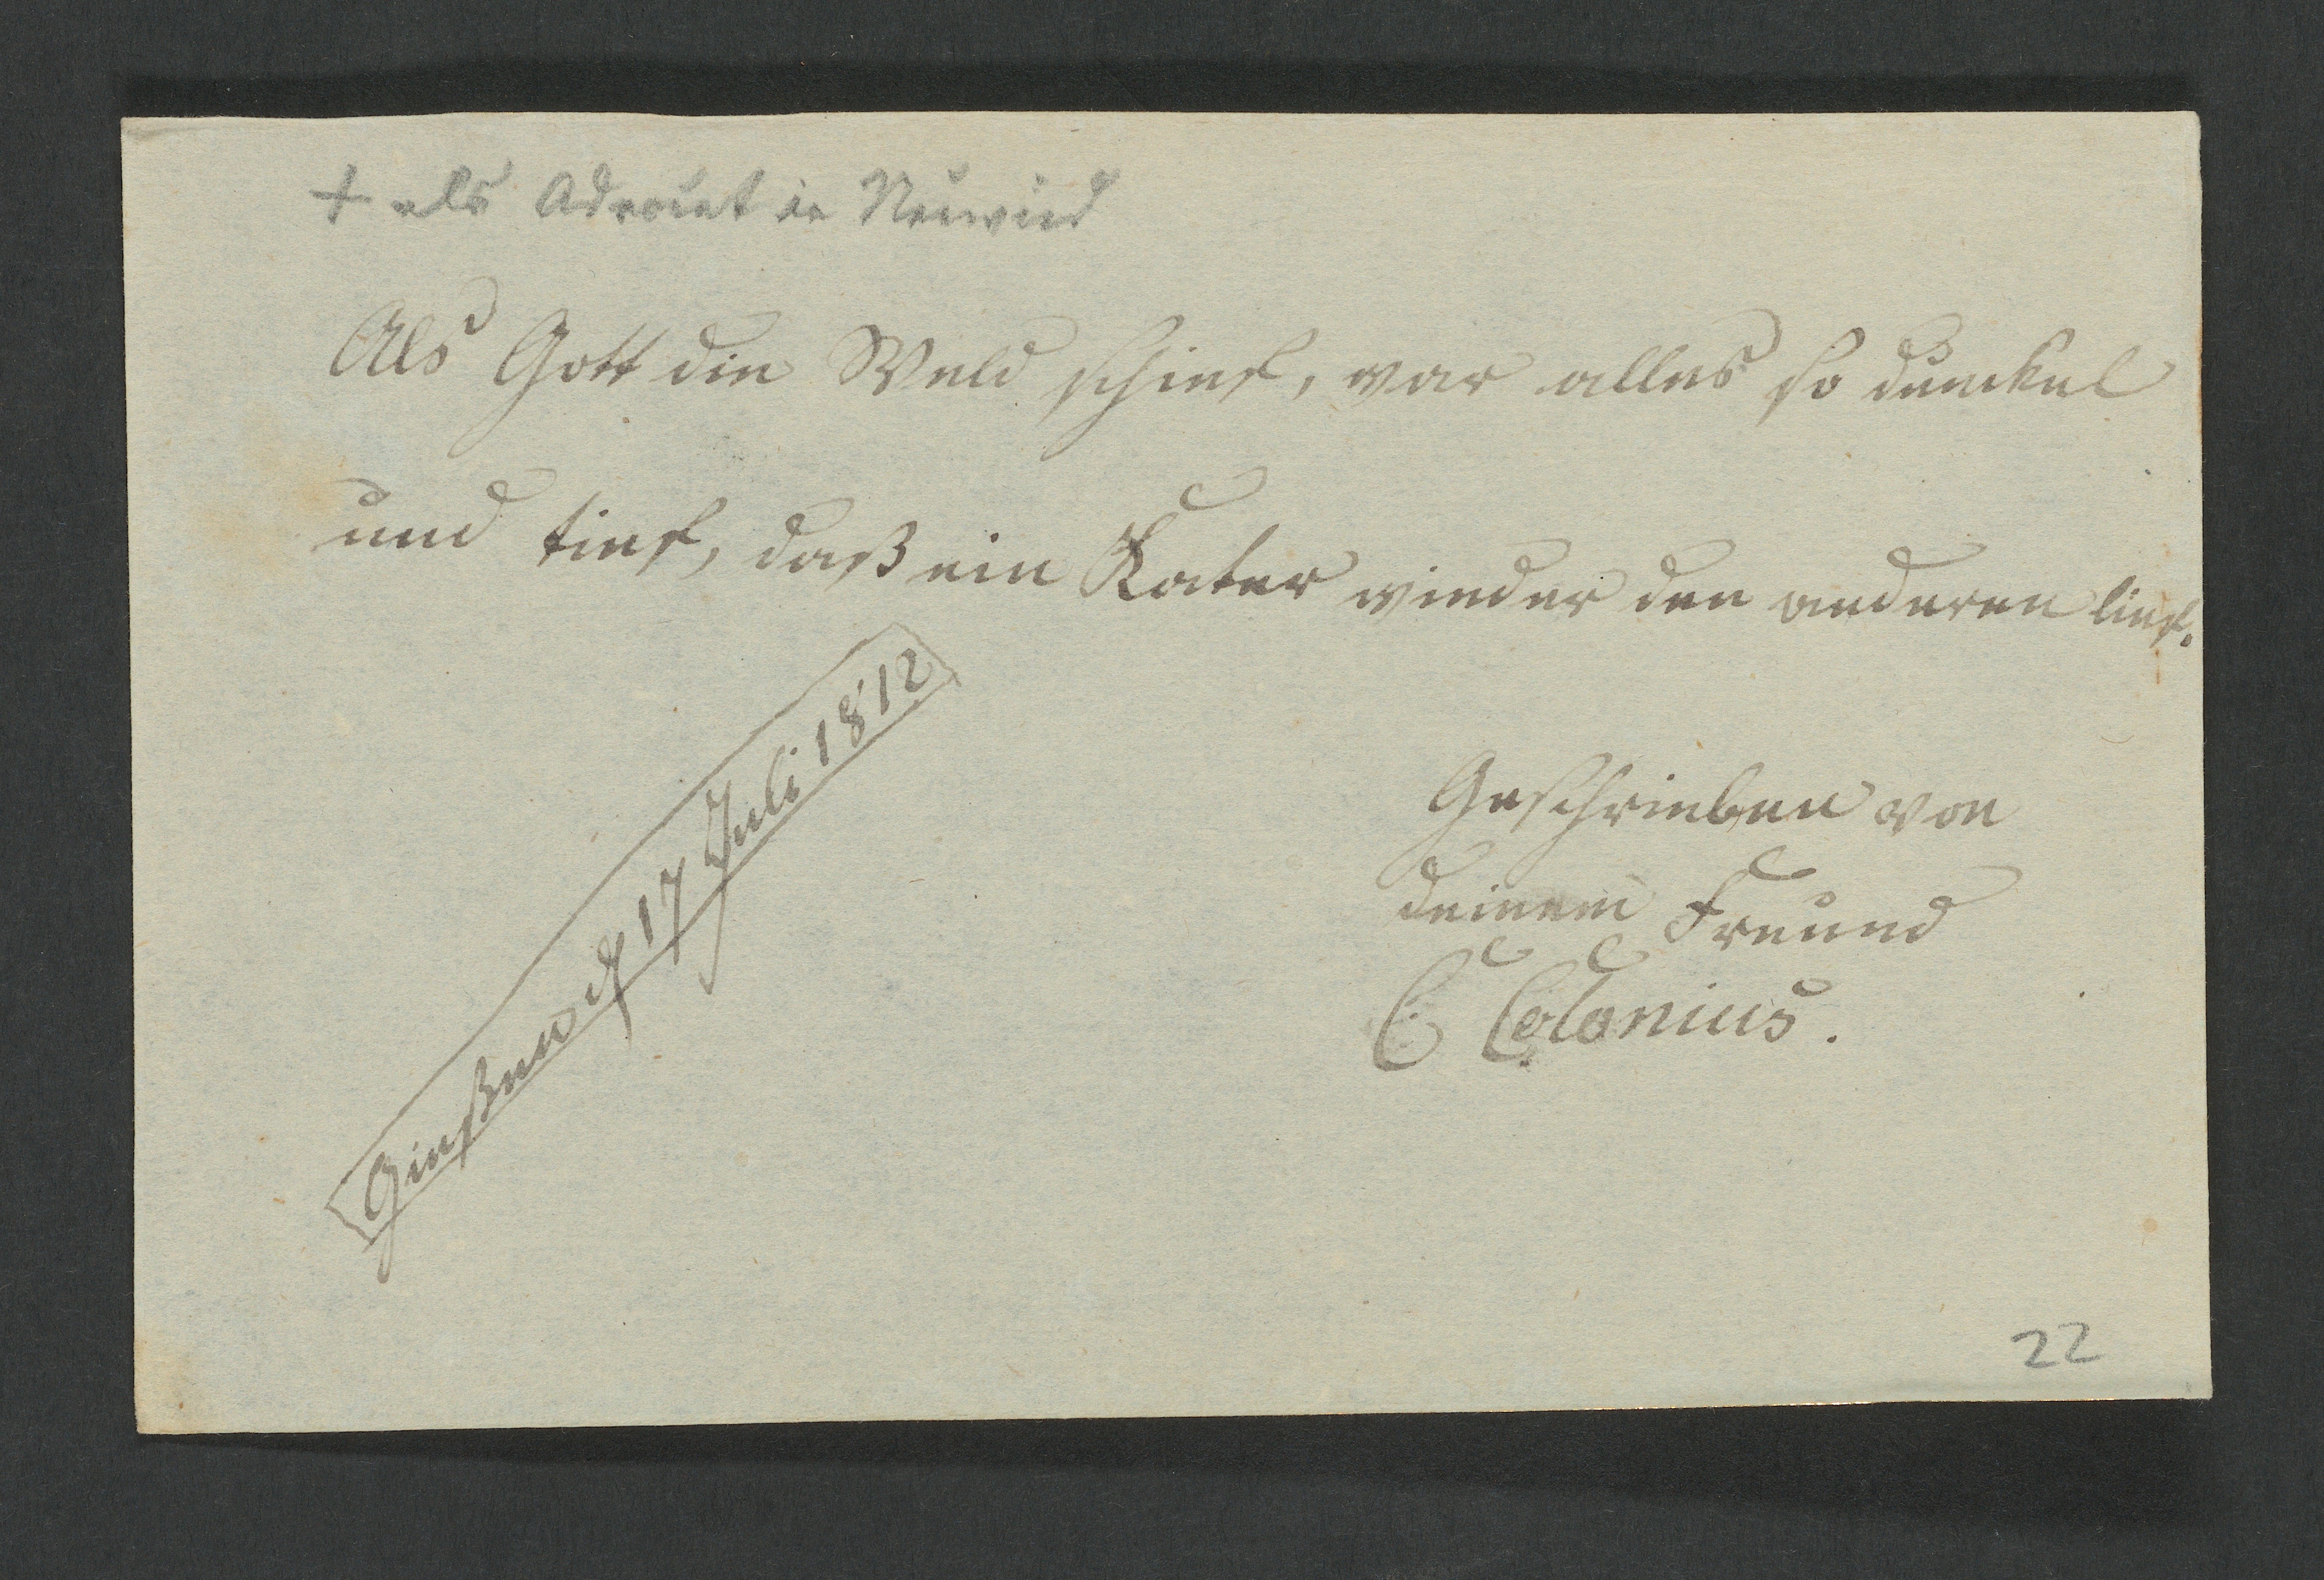 † als Advocat in Neuwied
Als Gott die Weld schief, war alles so dunckel
und tief, daß ein Kater wieder den anderen lief.
Gießen d 17 Juli 1812
Geschrieben von
deinem Freund
C Colonius.
22